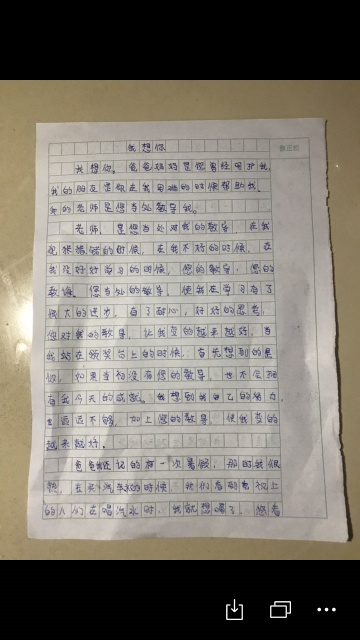 我想你
我想你，爸爸妈妈是您曾经呵护我，
我的朋友是你在我困难的时候帮助我，
我的老师是您当处教导我。
老师，是您当处对我的教导，在我
犯错的时候，在我不好的时候，在
我没好好学习的时候，您的教导，您的
教诲，您当处的教导，使我在学习有了
很大的进步，有了耐心，好好的思考，
您对我的教导，让我变的越来越好，当
我站在领奖台上的时候，首先想到的是
您，如果当初没有您的教导，也不会拥
有我今天的成就。我想到我自己的努力，
也远远不够，加上您的教导，使我变的
越来越好。
爸爸我还记的有一次暑假，那时我很
热，在的时候，我们看到电视上
的人们在喝汽水时，我就想喝了，您看